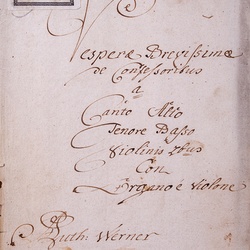 Vesperæ Brevissimæ
de Confessoribus
a
Canto Alto
Tenore Basso
Violinis 2bus
Con
Organo è Violone
Auth: Werner